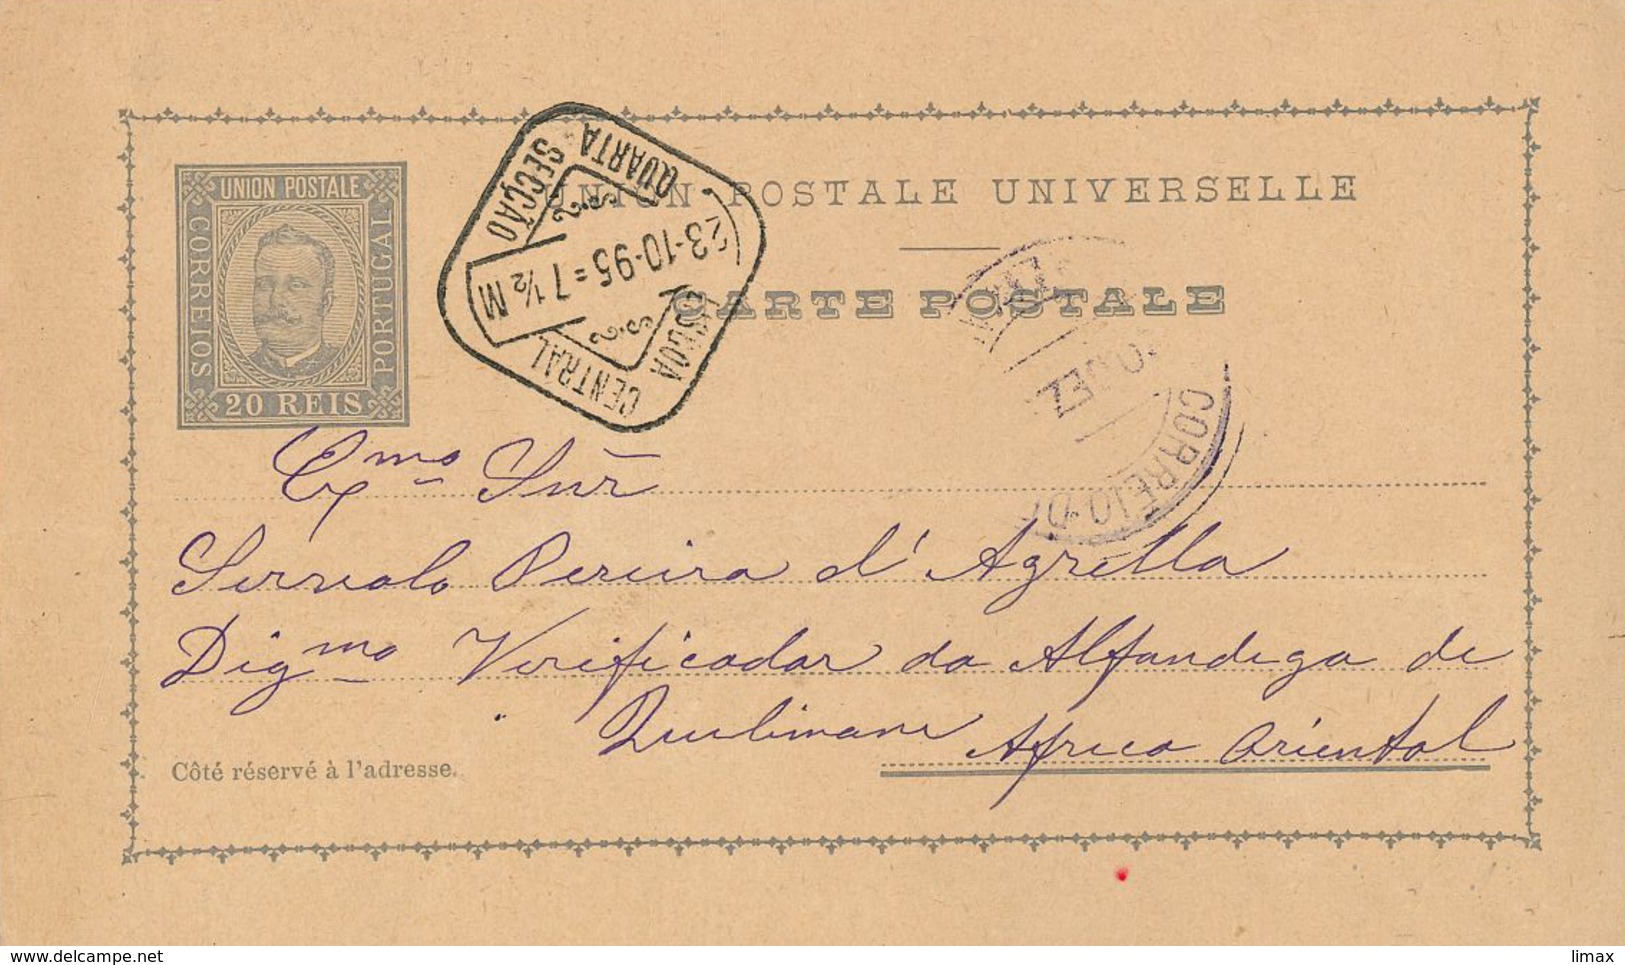 UNION POSTALE
CORREIOS
PORTUGAL
20 REIS
QUARTA
SECÇÃO
23-10-95=7 ½ M
LISBOA
CENTRAL
UNION POSTALE UNIVERSELLE
CARTE POSTALE
DEZ
CORREIO DE
Exmo Snr
Servulo Pereira d'Agrella
Digmo Verificador da Alfandega de
Quelimane Africa Oriental
Côté réservé à l'adresse.
www.delcampe.net
limax